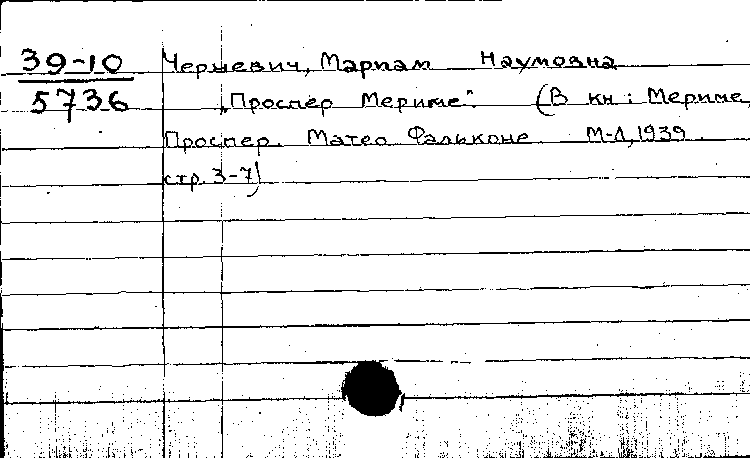 39-10 Черневич, Мариам Наумовна
5736 „Проспер Мериме". (В кн: Мериме,
Проспер. Матео Фальконе М-Л, 1939.
стр. 3-7)